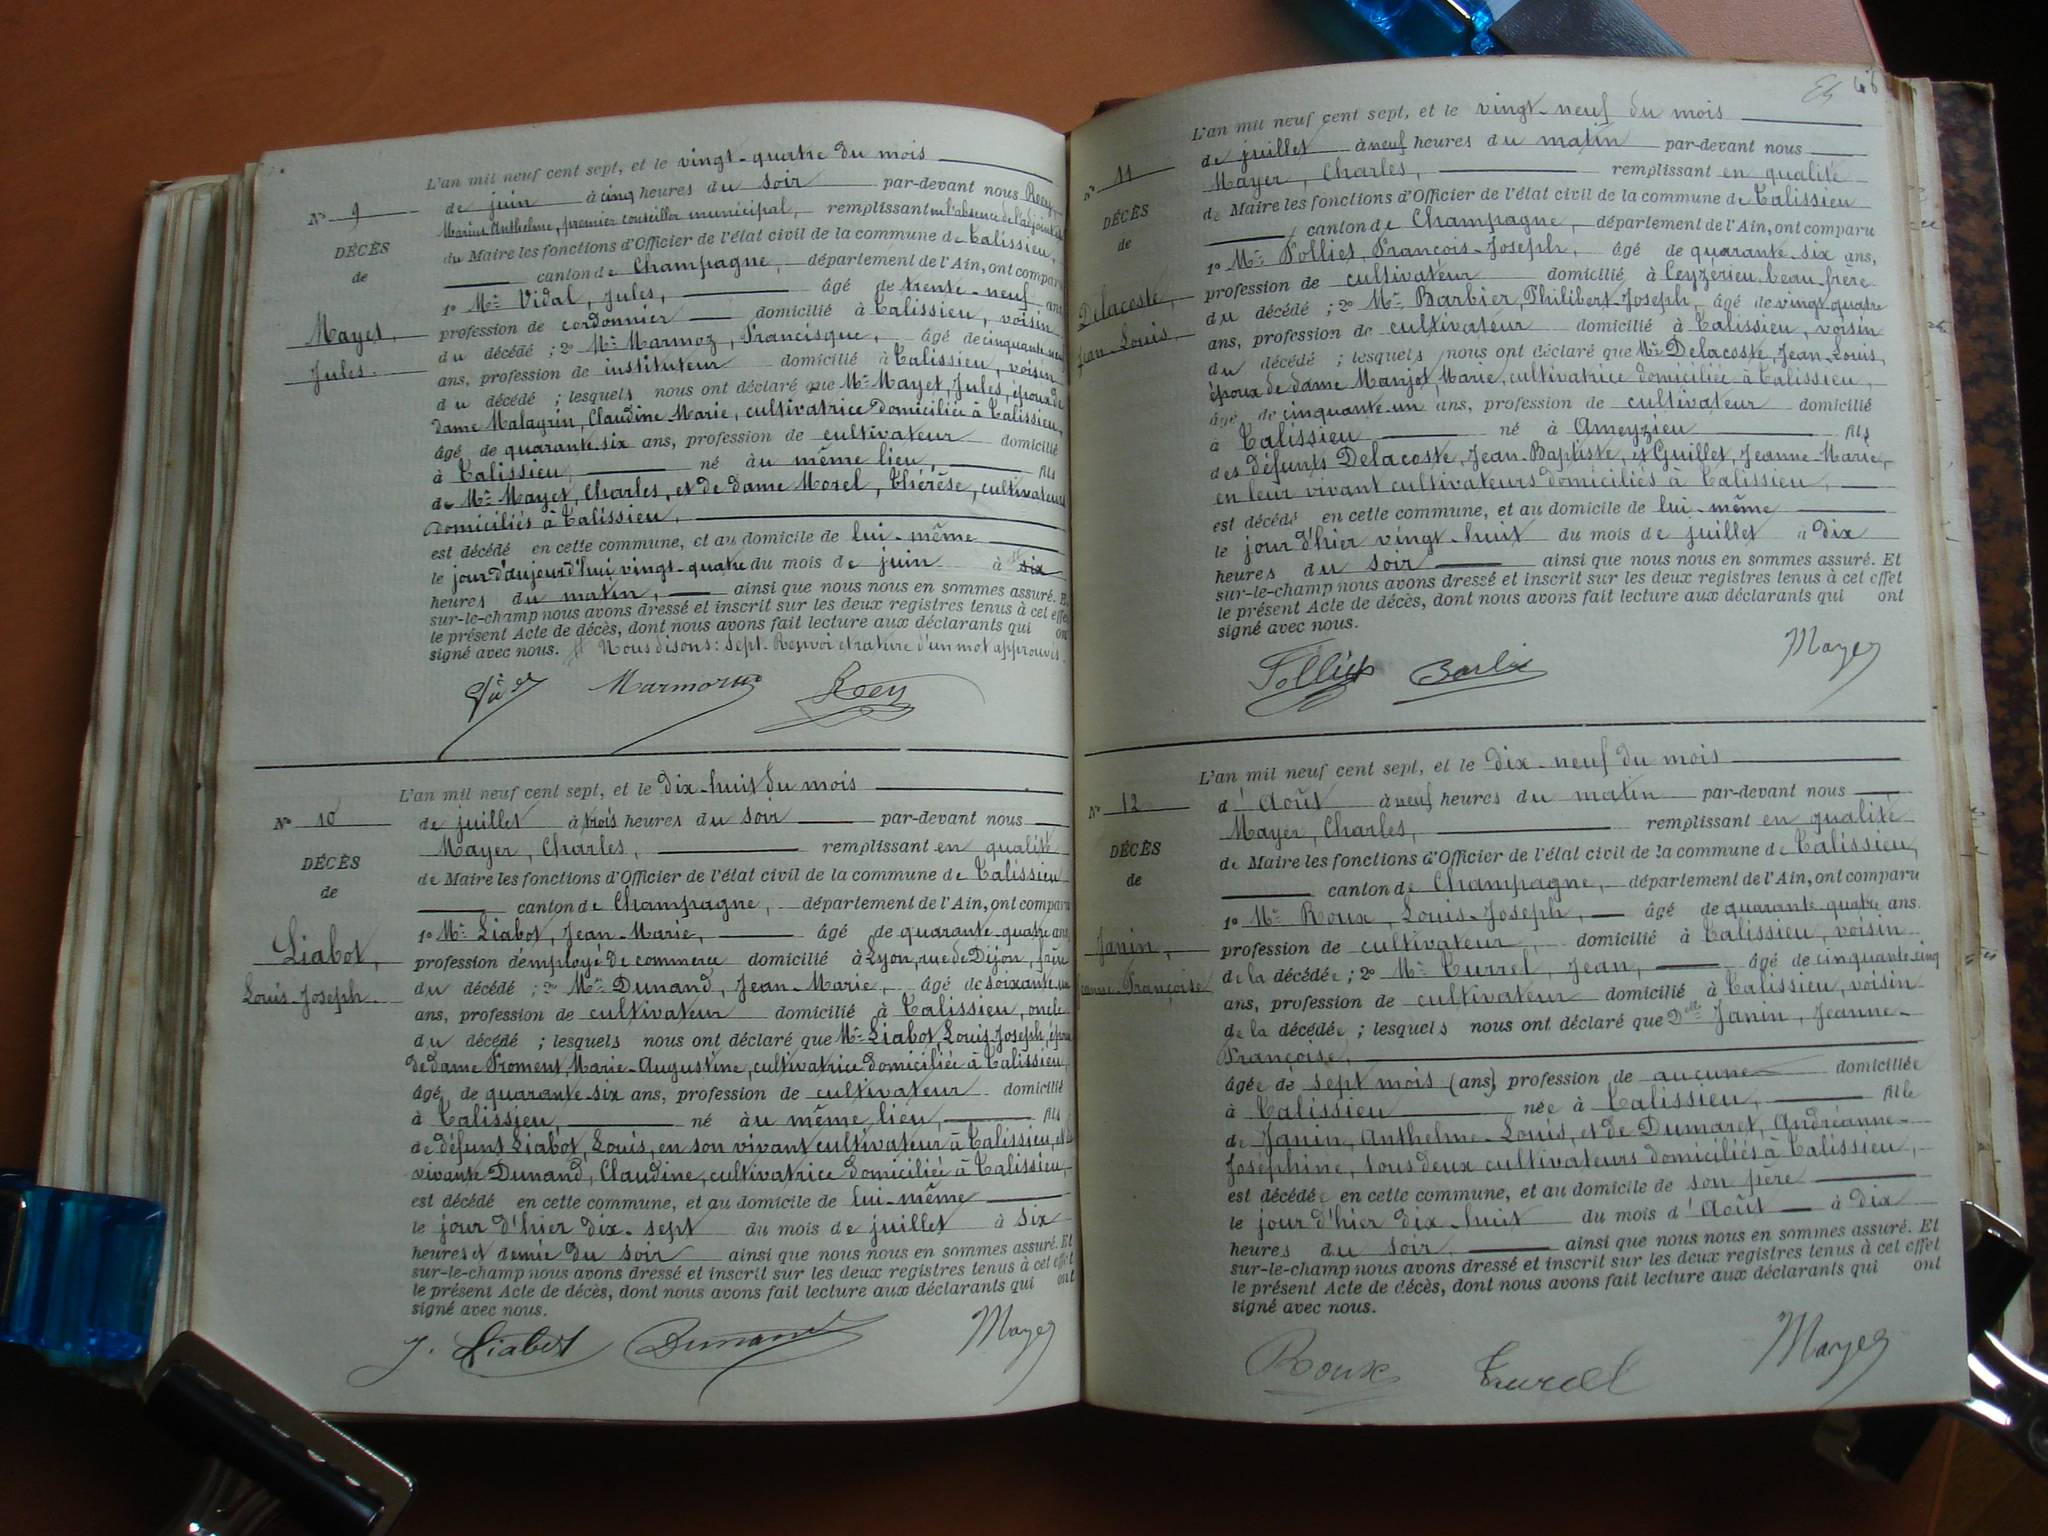 L'an mil neuf cent sept, et le vingt-quatre du mois
de juin à cinq heures du soir par-devant nous Récy,
Marius Anthelme, premier conseiller municipal, remplissant en l'absence de l'adjoint et
du Maire les fonctions d'Officier de l'état civil de la commune de Talissieu,
canton de Champagne, département de l'Ain, ont comparu
1º Mr Vidal, Jules, âgé de trente-neuf ans
profession de cordonnier domicilié à Talissieu, voisin
du décédé ; 2º Mr Marmoz, Francisque, âgé de cinquante
ans, profession de instituteur domicilié à Talissieu, voisin
du décédé ; lesquels nous ont déclaré que Mr Mayet, Jules, époux de
dame Malagrin, Claudine Marie, cultivatrice domiciliée à Talissieu,
âgé de quarante-six ans, profession de cultivateur domicilié
à Talissieu, né au même lieu, fils
de Mr Mayet, Charles, et de dame Morel, Thérèse, cultivateurs
domiciliés à Talissieu,
est décédé en cette commune, et au domicile de lui-même
le jour d'aujourd'hui vingt-quatre du mois de juin à six
heures du matin, ainsi que nous nous en sommes assuré. Et
sur-le-champ nous avons dressé et inscrit sur les deux registres tenus à cet effet
le présent Acte de décès, dont nous avons fait lecture aux déclarants qui ont
signé avec nous. Nous disons: sept. Renvoi et rature d'un mot approuvés.
Nº 9
DÉCÈS
de
Mayet,
Jules.
L'an mil neuf cent sept, et le dix-huit du mois
de juillet à trois heures du soir par-devant nous
Mayer, Charles, remplissant en qualité
de Maire les fonctions d'Officier de l'état civil de la commune de Talissieu
canton de Champagne, département de l'Ain, ont comparu
1º Mr Liabot, Jean-Marie, âgé de quarante-quatre ans
profession d'employé de commerce domicilié à Lyon, rue de Dijon, frère
du décédé ; 2º Mr Dunand, Jean-Marie, âgé de soixante-un
ans, profession de cultivateur domicilié à Talissieu, oncle
du décédé ; lesquels nous ont déclaré que Mr Liabot, Louis-Joseph, époux
de dame Froment, Marie-Augustine, cultivatrice domiciliée à Talissieu,
âgé de quarante-six ans, profession de cultivateur domicilié
à Talissieu, né au même lieu, fils
de défunt Liabot, Louis, en son vivant cultivateur à Talissieu, et de
vivante Dunand, Claudine, cultivatrice domiciliée à Talissieu,
est décédé en cette commune, et au domicile de lui-même
le jour d'hier dix-sept du mois de juillet à six
heures et demie du soir ainsi que nous nous en sommes assuré. Et
sur-le-champ nous avons dressé et inscrit sur les deux registres tenus à cet effet
le présent Acte de décès, dont nous avons fait lecture aux déclarants qui ont
signé avec nous.
J. Liabot Dunand Mayer
Nº 10
DÉCÈS
de
Liabot,
Louis-Joseph.
48
L'an mil neuf cent sept, et le vingt-neuf du mois
de juillet à neuf heures du matin par-devant nous
Mayer, Charles, remplissant en qualité
de Maire les fonctions d'Officier de l'état civil de la commune de Talissieu
, canton de Champagne, département de l'Ain, ont comparu
1º Mr Folliet, François-Joseph, âgé de quarante-six ans,
profession de cultivateur domicilié à Ceyzérieu, beau-frère
du décédé ; 2º Mr Barbier, Philibert-Joseph, âgé de vingt-quatre
ans, profession de cultivateur domicilié à Talissieu, voisin
du décédé ; lesquels nous ont déclaré que Mr Delacoste, Jean-Louis,
époux de dame Manjot, Marie, cultivatrice domiciliée à Talissieu,
âgé de cinquante-un ans, profession de cultivateur domicilié
à Talissieu né à Ameyzieu fils
des défunts Delacoste, Jean-Baptiste, et Guillet, Jeanne-Marie,
en leur vivant cultivateurs domiciliés à Talissieu,
est décédé en cette commune, et au domicile de lui-même
le jour d'hier vingt-huit du mois de juillet à dix
heures du soir ainsi que nous nous en sommes assuré. Et
sur-le-champ nous avons dressé et inscrit sur les deux registres tenus à cet effet
le présent Acte de décès, dont nous avons fait lecture aux déclarants qui ont
signé avec nous.
Folliet Barbier Mayer
Nº 11
DÉCÈS
de
Delacoste,
Jean-Louis.
L'an mil neuf cent sept, et le dix-neuf du mois
d'Août à neuf heures du matin par-devant nous
Mayer, Charles, remplissant en qualité
de Maire les fonctions d'Officier de l'état civil de la commune de Talissieu,
canton de Champagne, département de l'Ain, ont comparu
1º Mr Roux, Louis-Joseph, âgé de quarante-quatre ans.
profession de cultivateur, domicilié à Talissieu, voisin
de la décédée ; 2º Mr Turrel, Jean, âgé de cinquante-cinq
ans, profession de cultivateur domicilié à Talissieu, voisin
de la décédée ; lesquels nous ont déclaré que Delle Janin, Jeanne-
Françoise,
âgée de sept mois (ans) profession de aucune domiciliée
à Talissieu née à Talissieu, fille
de Janin, Anthelme-Louis, et de Dumaret, Andréanne-
Joséphine, tous deux cultivateurs domiciliés à Talissieu,
est décédée en cette commune, et au domicile de son père
le jour d'hier dix-huit du mois d'Août à dix
heures du soir, ainsi que nous nous en sommes assuré. Et
sur-le-champ nous avons dressé et inscrit sur les deux registres tenus à cet effet
le présent Acte de décès, dont nous avons fait lecture aux déclarants qui ont
signé avec nous.
Roux Turrel Mayer
Nº 12
DÉCÈS
de
Janin,
Jeanne-Françoise